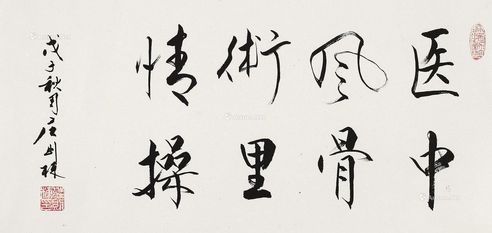 医中
风骨
術里
情操
戊子秋月